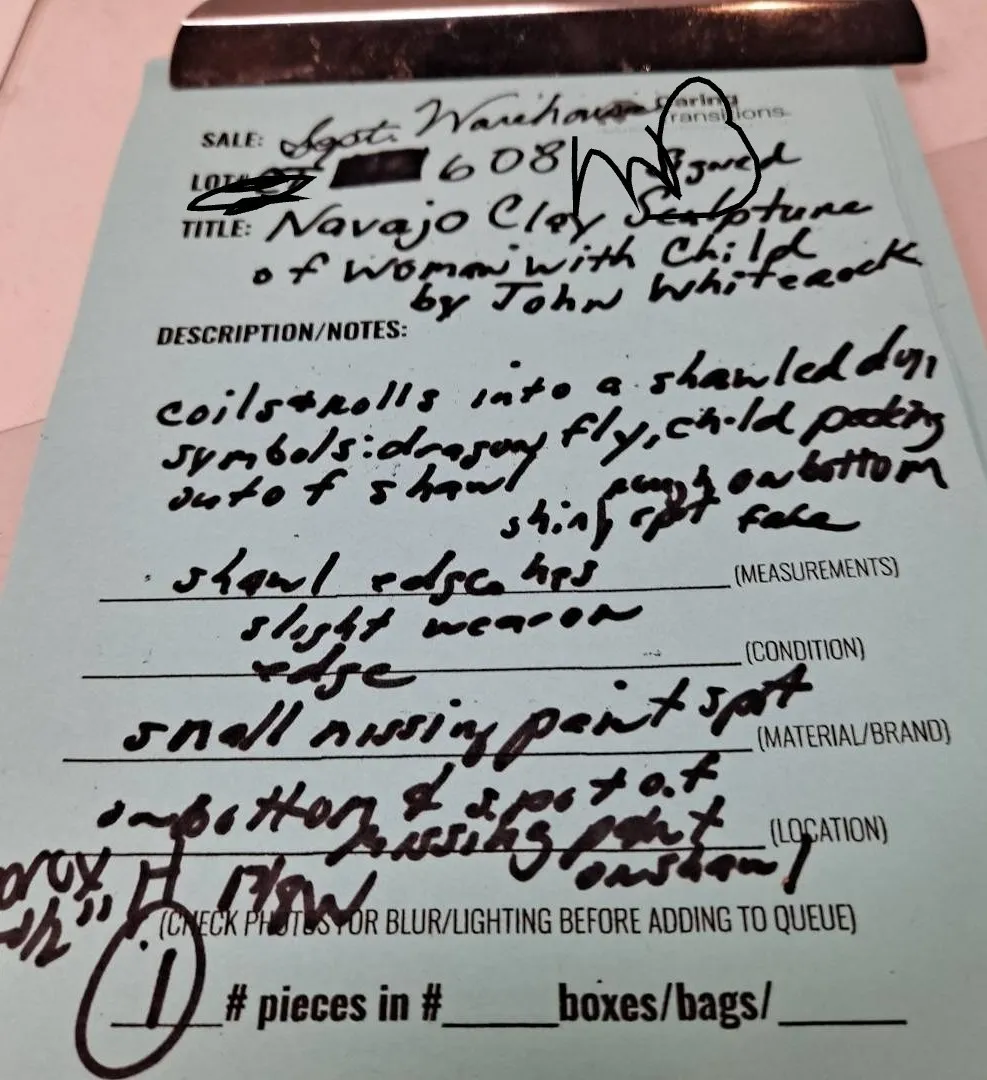 SALE: Sept. Warehouse Caring Transitions
LOT# 608 signed
TITLE: Navajo Clay Sculpture
of Woman with Child
by John Whiterock
DESCRIPTION/NOTES:
coils & rolls into a shawled
symbols: dragon fly, child peeking
out of shawl on bottom
shiny spot
shawl edge has (MEASUREMENTS)
slight wear on
edge (CONDITION)
small missing paint spot (MATERIAL/BRAND)
on bottom & spot of
missing paint (LOCATION)
on shawl
H
(CHECK PHOTOS FOR BLUR/LIGHTING BEFORE ADDING TO QUEUE)
1 # pieces in #____ boxes/bags/____